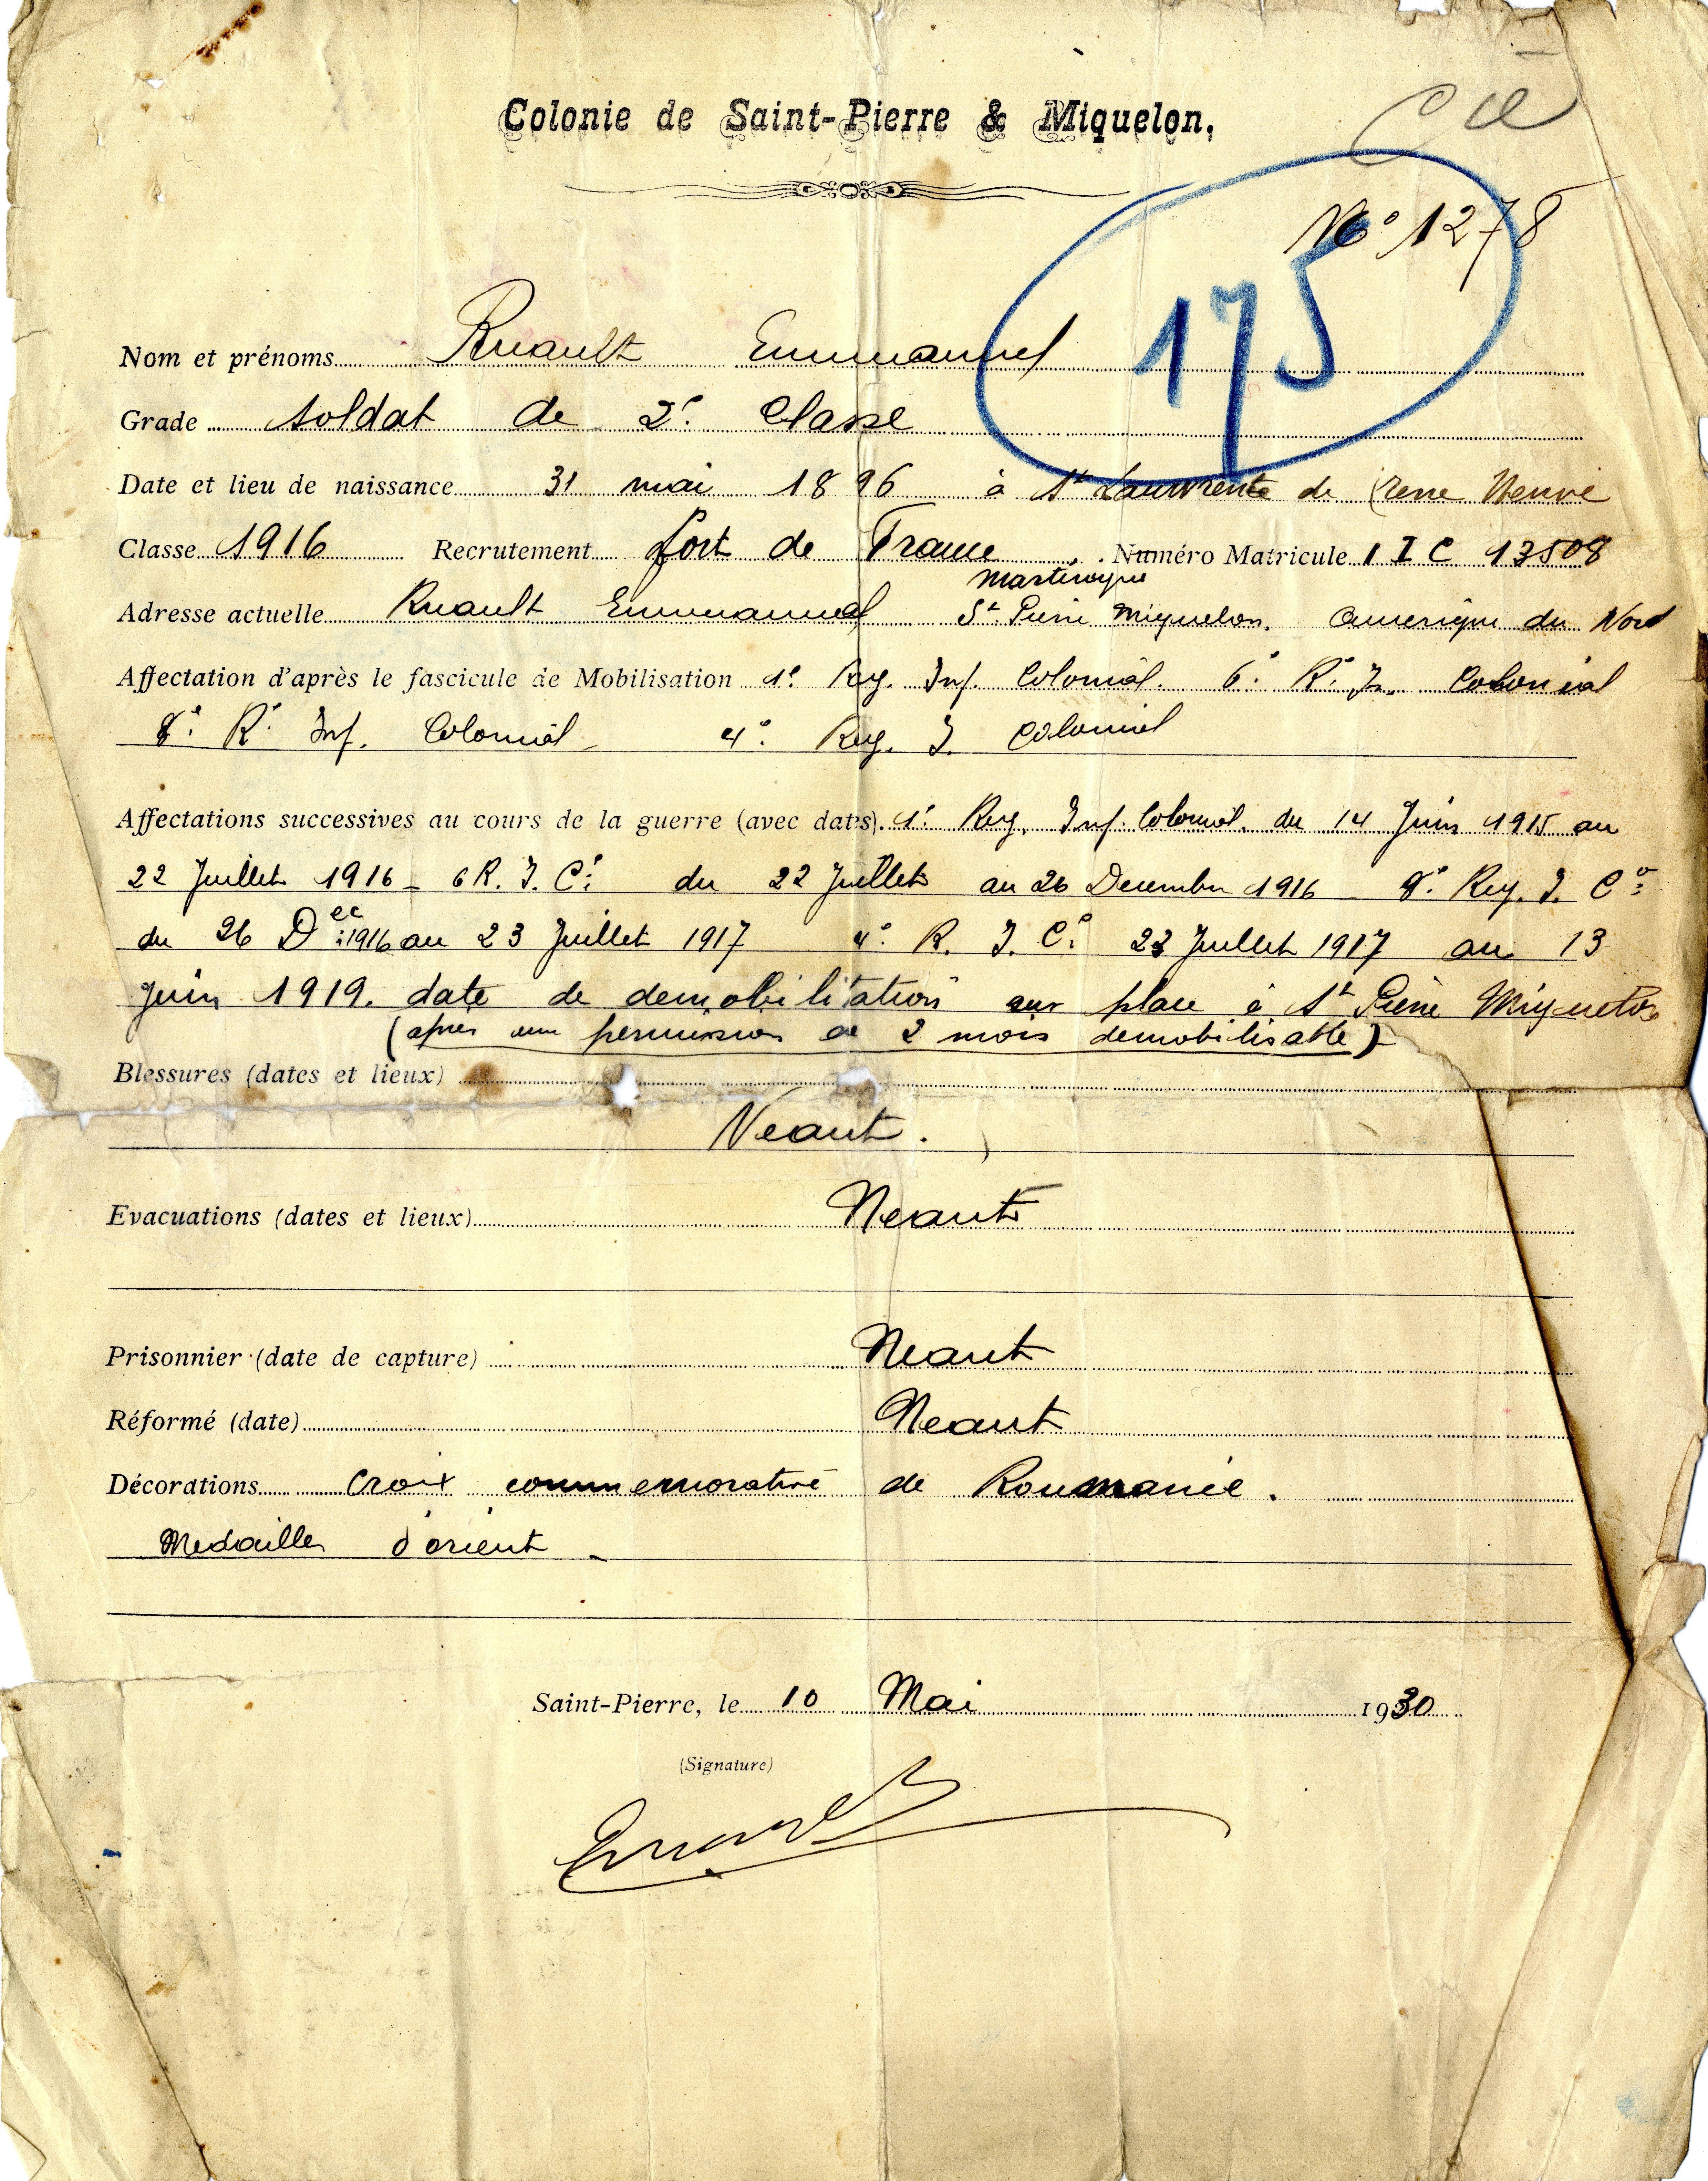 Colonie de Saint-Pierre & Miquelon.
No 1278
175
Nom et prénoms Ruault Emmanuel
Grade Soldat de 2e Classe
Date et lieu de naissance 31 mai 1896 à St Lauwrente de Terre Neuve
Classe 1916 Recrutement fort de France Numéro Matricule 1 I C 13508
Martinique
Adresse actuelle Ruault Emmanuel St Pierre Miquelon. Amerique du Nord
Affectation d'après le fascicule de Mobilisation 1e Reg. Inf. Colonial. 6e R. I. Colonial
8e R. Inf. Colonial 4e Reg. I. Colonial
Affectations successives au cours de la guerre (avec dates). 1e Reg. Inf. Colonial. du 14 Juin 1915 au
22 Juillet 1916 - 6 R. I. Cl du 22 Juillet au 26 Decembre 1916 8e Reg. I. Cl
du 26 Dec 1916 au 23 Juillet 1917 4e R. I. Cl 23 Juillet 1917 au 13
Juin 1919. date de demobilitation sur place à St Pierre Miquelon
(apres une permission de 2 mois demobilisable)
Blessures (dates et lieux)
Neant.
Evacuations (dates et lieux) Neant
Prisonnier (date de capture) Neant
Réformé (date) Neant
Décorations Croix commemorative de Roumanie.
Medaille d'orient -
Saint-Pierre, le 10 Mai 1930
(Signature)